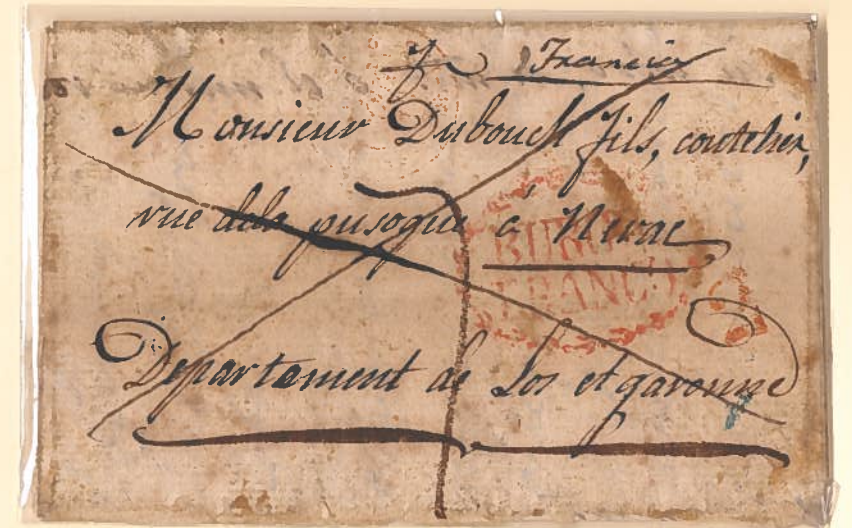 Francia
Monsieur Dubouch fils, coutelier,
rue dela pusoque à Nerac
BURGOS
FRANCO
Departement de Lot et garonne